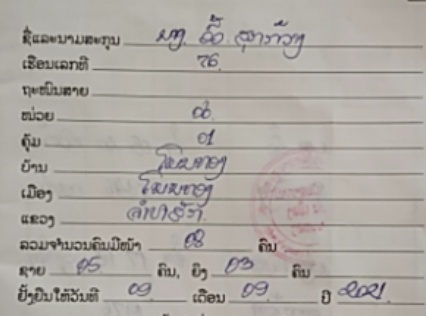 ຊື່ແລະນາມສະກຸນ ນາງ
ເຮືອນເລກທີ 76
ຖະໜົນສາຍ
ໜ່ວຍ 06
ຄຸ້ມ 01
ບ້ານ ໂພນທອງ
ເມືອງ ໂພນທອງ
ແຂວງ ຈຳປາສັກ
ລວມຈຳນວນຄົນມີໜ້າ 08 ຄົນ
ຊາຍ 05 ຄົນ, ຍິງ 03 ຄົນ
ຢັ້ງຢືນໃຫ້ວັນທີ 09 ເດືອນ 09 ປີ 2021